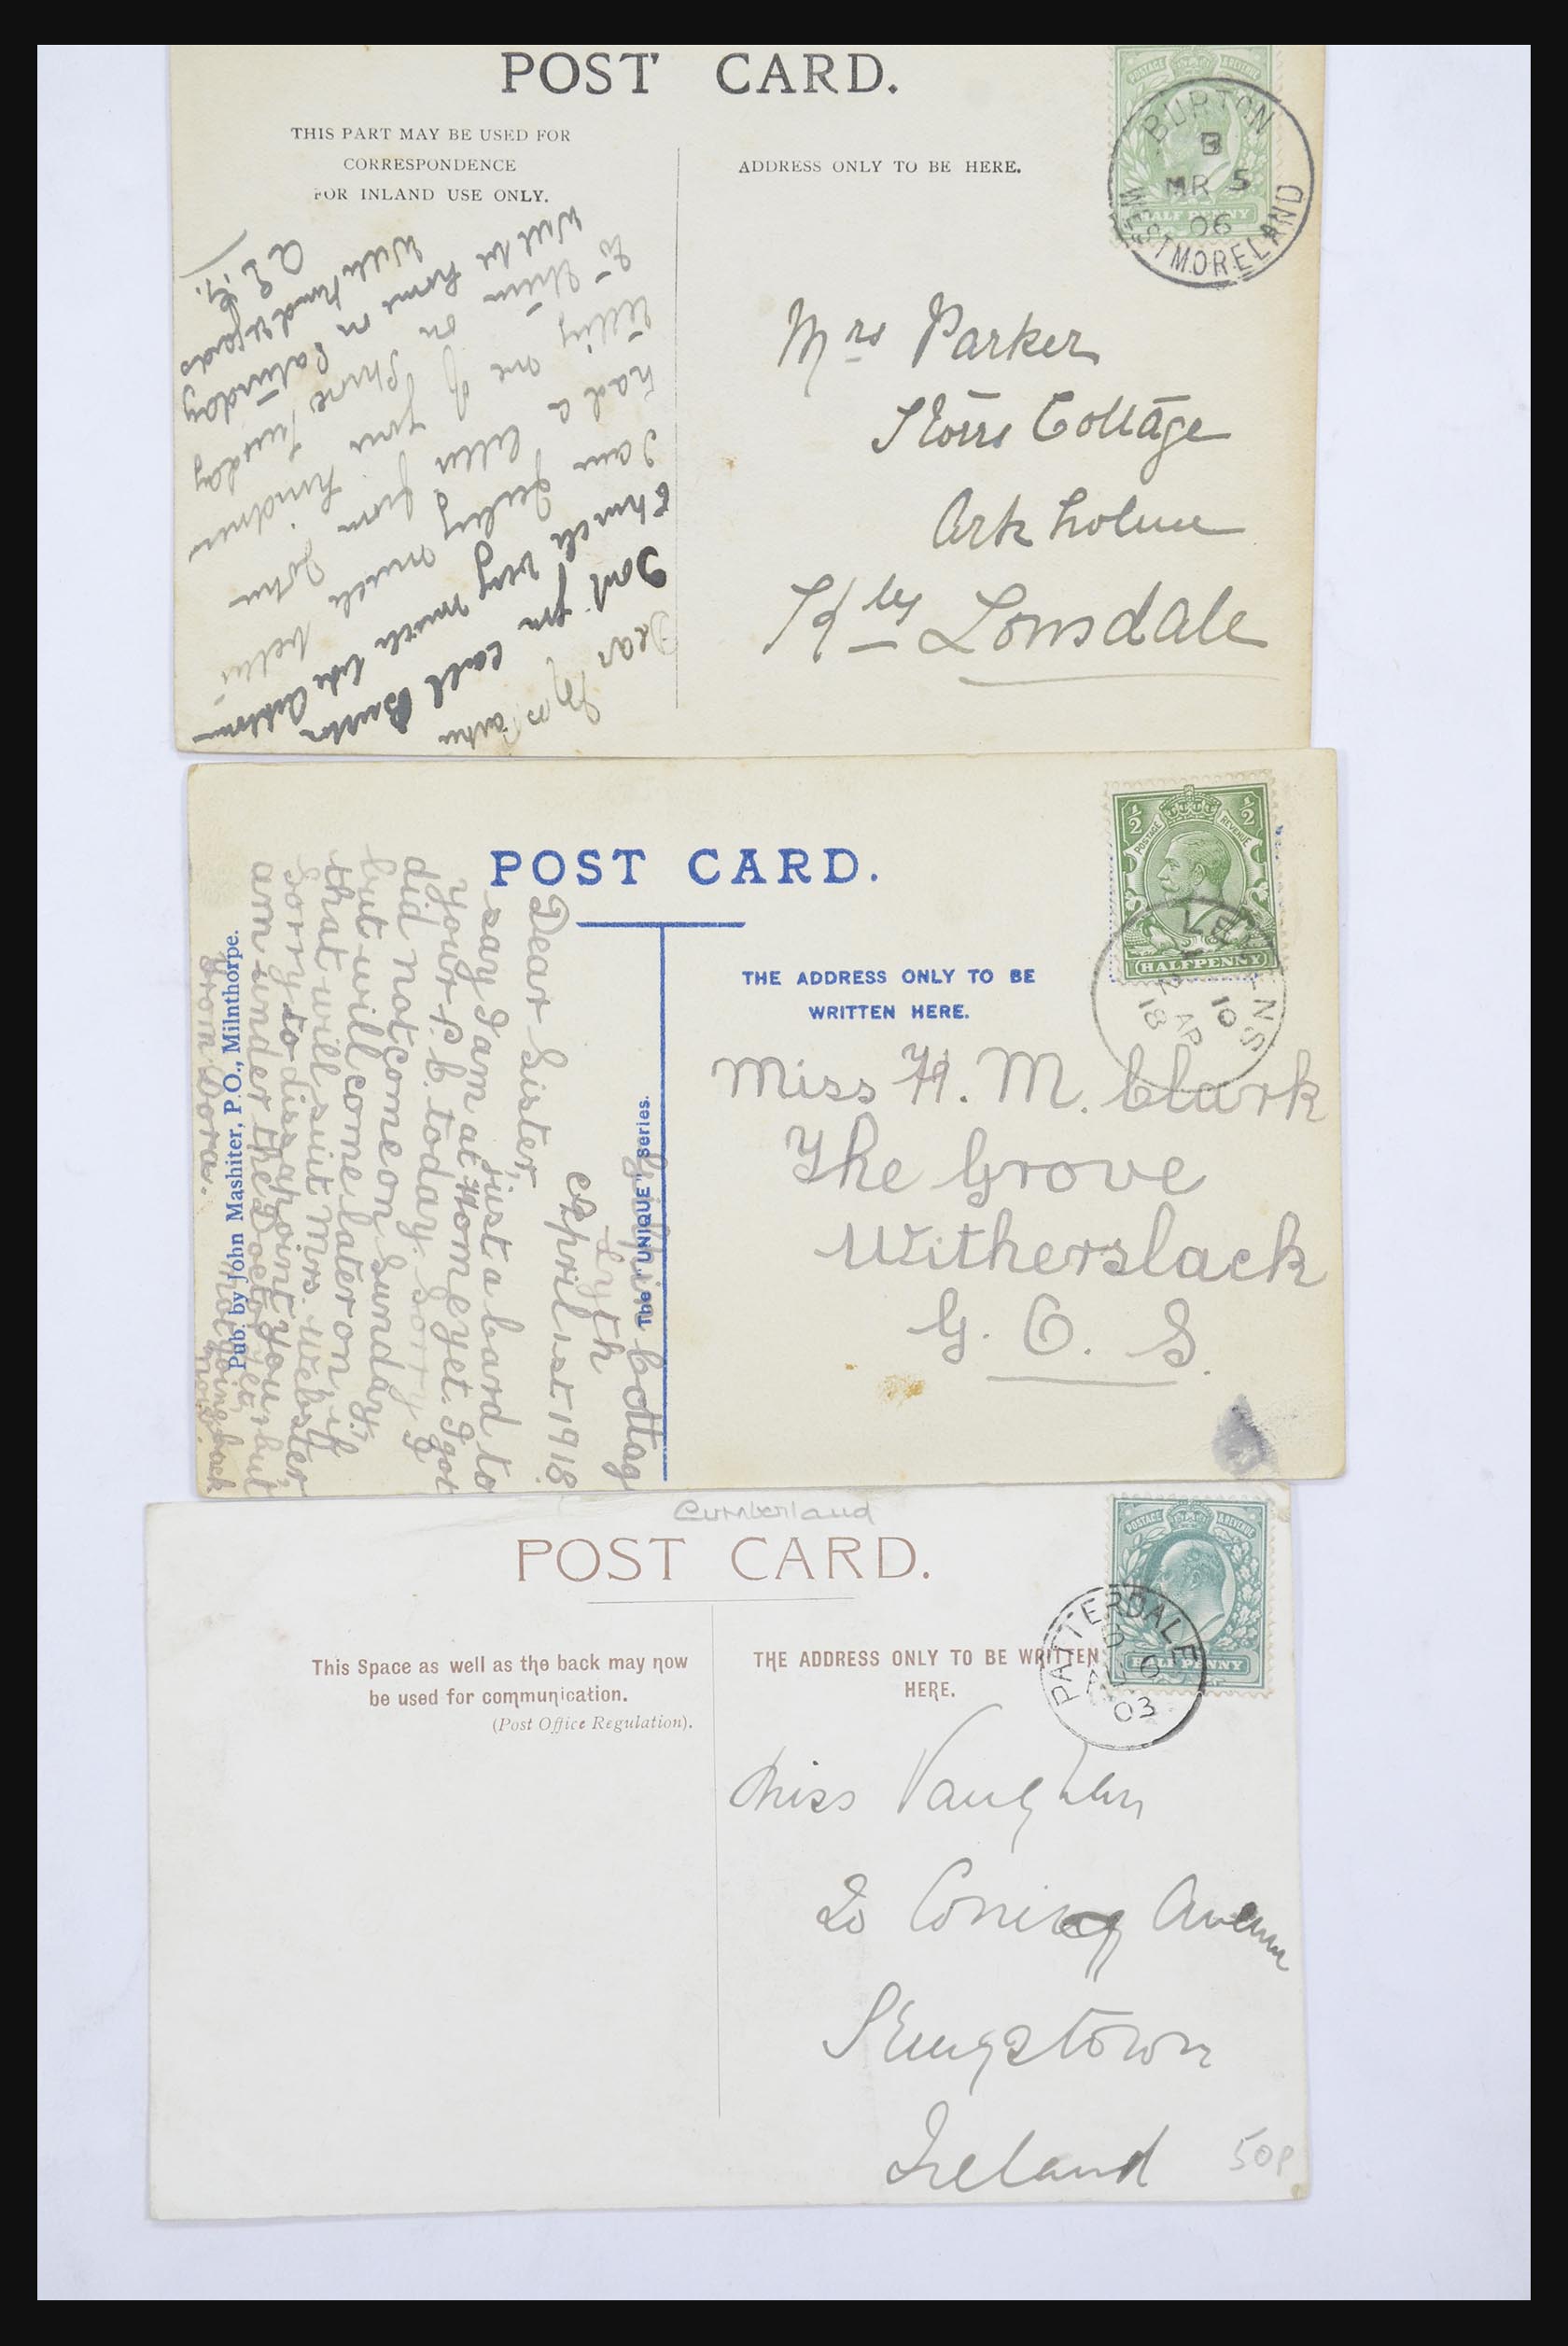 POST CARD.
THIS PART MAY BE USED FOR
CORRESPONDENCE
FOR INLAND USE ONLY.
ADDRESS ONLY TO BE HERE.
POSTAGE & REVENUE
HALF PENNY
BURTON
B
MR 5
06
WESTMORELAND
Mrs Parker
Storrs Cottage
Arkholme
K by Lonsdale
Dear Mrs Parker
Don't you call Burton
Church very much like
I am feeling much better
had a letter from John
telling me of your kindness
to them on Tuesday
will be home on Saturday
With kind regards
POST CARD.
THE ADDRESS ONLY TO BE
WRITTEN HERE.
½ ½
POSTAGE REVENUE
HALFPENNY
LEVENS
10
2 AP
18
Miss H. M. Clark
The Grove
Witherslack
G. O. S.
The "UNIQUE" Series.
Pub. by John Mashiter, P.O., Milnthorpe.
Cottag
Lyth
April 1st 1918
Dear Sister,
Just a card to
say I am at Home yet. I got
your P.C. today. Sorry I
did not come on Sunday,
but will come later on if
that will suit Mrs. Webster
Sorry to dissapoint you
am under the Doctor yet, but
from Dora.
not going back
Cumberland
POST CARD.
This Space as well as the back may now
be used for communication.
(Post Office Regulation).
THE ADDRESS ONLY TO BE WRITTEN
HERE.
POSTAGE & REVENUE
HALF PENNY
PATTERDALE
03
Miss Vaughan
20 Avenue
Kingstown
Ireland
50p